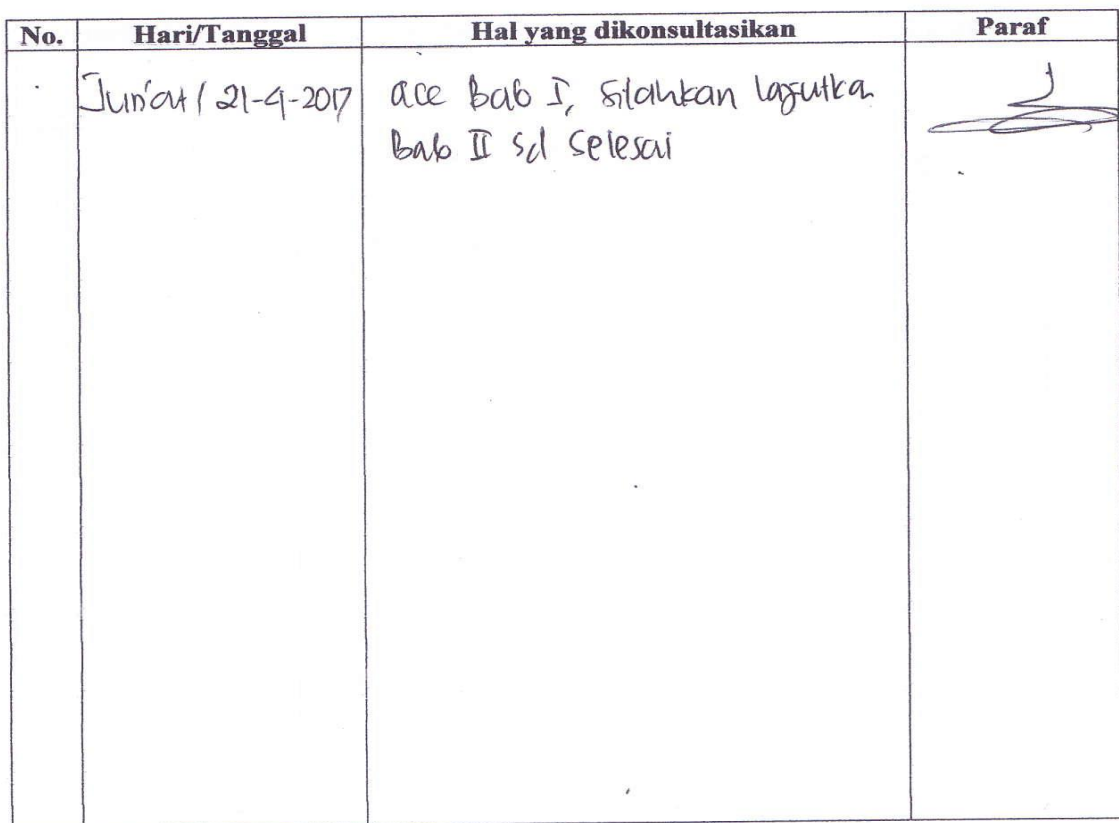 No. Hari/Tanggal Hal yang dikonsultasikan Paraf
Jum'at / 21-4-2017 acc Bab I, silahkan lanjutkan
Bab II sd selesai